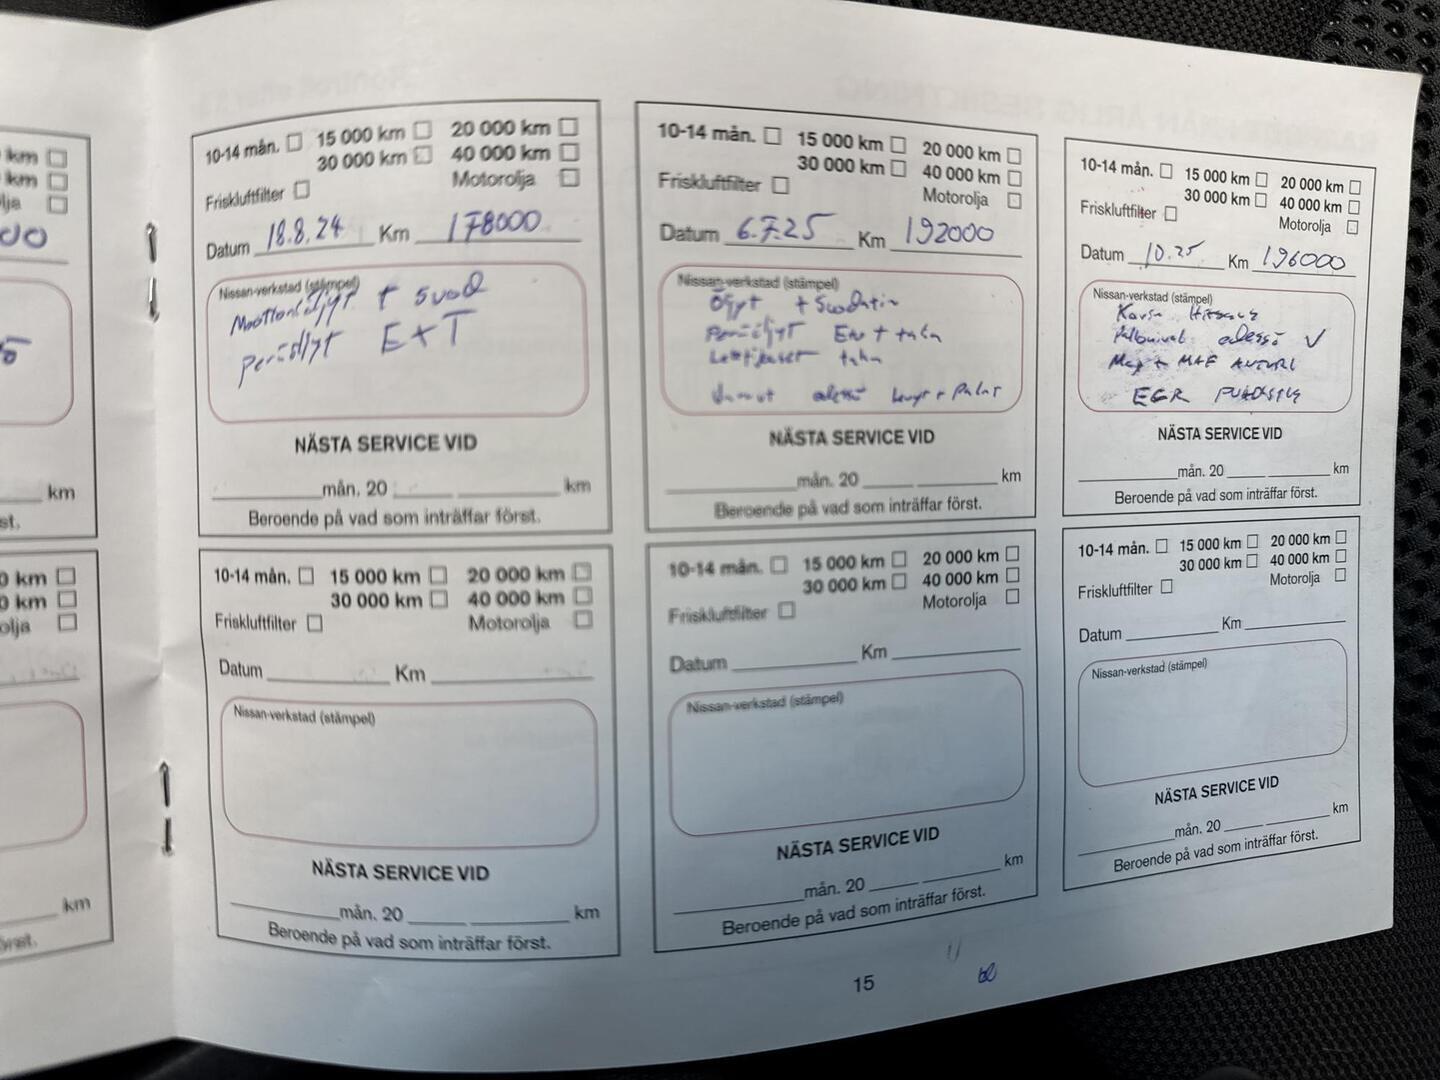 km
km
lja
00
km
st.
0 km
0 km
olja
km
10-14 mån. 15 000 km 20 000 km
30 000 km 40 000 km
Friskluftfilter Motorolja
Datum 18.8.24 Km 178000
Nissan-verkstad (stämpel)
+ suod
E+T
NÄSTA SERVICE VID
mån. 20 km
Beroende på vad som inträffar först.
10-14 mån. 15 000 km 20 000 km
30 000 km 40 000 km
Friskluftfilter Motorolja
Datum 6.7.25 Km 192000
Nissan-verkstad (stämpel)
Öljyt + Suodatin
Peräöljyt Etu + taka
taka
NÄSTA SERVICE VID
mån. 20 km
Beroende på vad som inträffar först.
10-14 mån. 15 000 km 20 000 km
30 000 km 40 000 km
Friskluftfilter Motorolja
Datum 10.25 Km 196000
Nissan-verkstad (stämpel)
Map + MAF
EGR
NÄSTA SERVICE VID
mån. 20 km
Beroende på vad som inträffar först.
10-14 mån. 15 000 km 20 000 km
30 000 km 40 000 km
Friskluftfilter Motorolja
Datum Km
Nissan-verkstad (stämpel)
NÄSTA SERVICE VID
mån. 20 km
Beroende på vad som inträffar först.
10-14 mån. 15 000 km 20 000 km
30 000 km 40 000 km
Friskluftfilter Motorolja
Datum Km
Nissan-verkstad (stämpel)
NÄSTA SERVICE VID
mån. 20 km
Beroende på vad som inträffar först.
10-14 mån. 15 000 km 20 000 km
30 000 km 40 000 km
Friskluftfilter Motorolja
Datum Km
Nissan-verkstad (stämpel)
NÄSTA SERVICE VID
mån. 20 km
Beroende på vad som inträffar först.
15